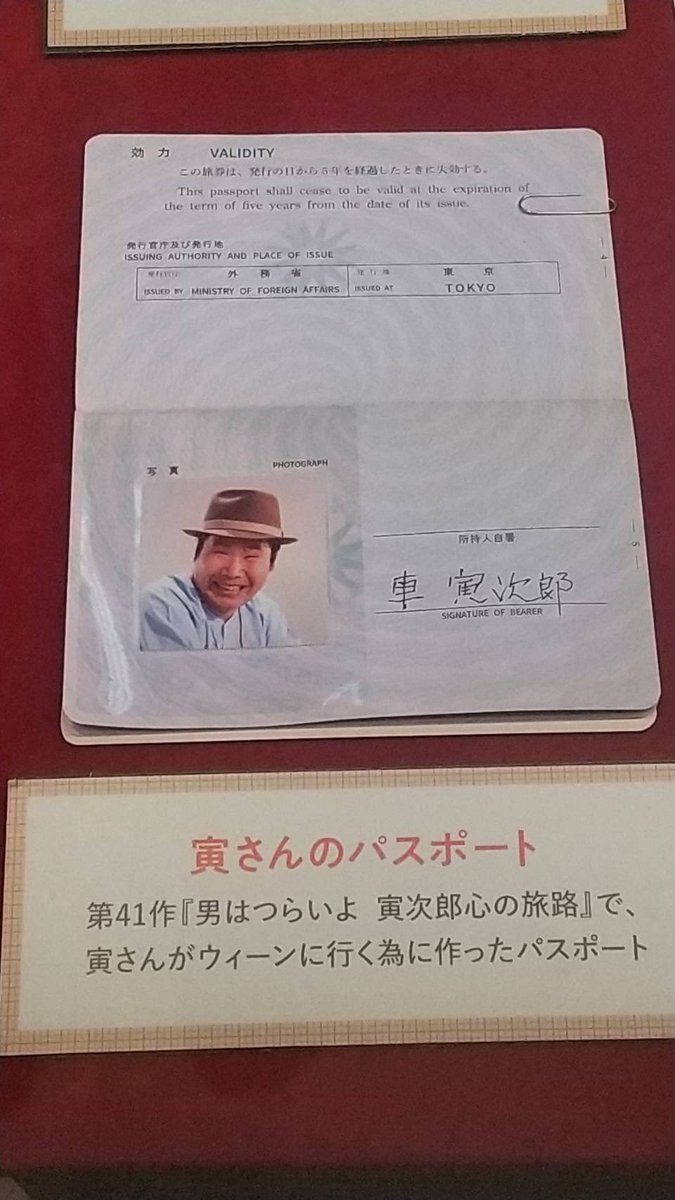 効力 VALIDITY
この旅券は、発行の日から5年を経過したときに失効する。
This passport shall cease to be valid at the expiration of
the term of five years from the date of its issue.
発行官庁及び発行地
ISSUING AUTHORITY AND PLACE OF ISSUE
発行官庁 外務省 発行地 東京
ISSUED BY MINISTRY OF FOREIGN AFFAIRS ISSUED AT TOKYO
— 4 —
写真 PHOTOGRAPH
所持人自署
車 寅次郎
SIGNATURE OF BEARER
— 5 —
寅さんのパスポート
第41作『男はつらいよ 寅次郎心の旅路』で、
寅さんがウィーンに行く為に作ったパスポート